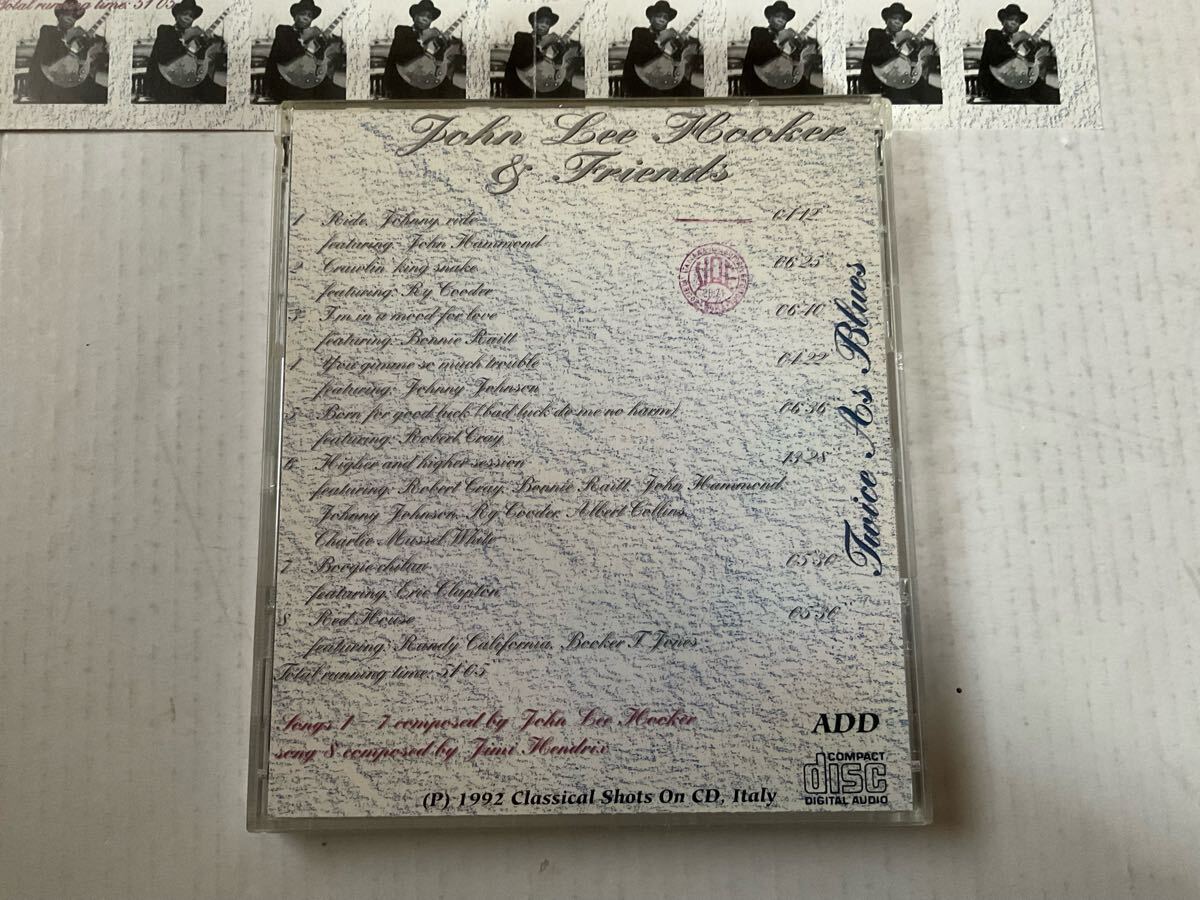 Total running time: 51'05
John Lee Hooker
& Friends
1 Ride, Johnny, ride 04'12"
featuring: John Hammond
2 Crawlin' king snake 06'25
featuring: Ry Cooder
3 I'm in a mood for love 06'10
featuring: Bonnie Raitt
4 You gimme so much trouble 04'22
featuring: Johnny Johnson
5 Born for good luck (bad luck do me no harm) 06'36
featuring: Robert Cray
6 Higher and higher session 13'28
featuring: Robert Cray, Bonnie Raitt, John Hammond,
Johnny Johnson, Ry Cooder, Albert Collins,
Charlie Mussel White
7 Boogie chillun 05'30
featuring: Eric Clapton
8 Red House 05'30"
featuring: Randy California, Booker T. Jones
Total running time: 51'05"
Songs 1 - 7 composed by John Lee Hooker
song 8 composed by Jimi Hendrix
(P) 1992 Classical Shots On CD, Italy
Twice As Blues
ADD
COMPACT
disc
DIGITAL AUDIO